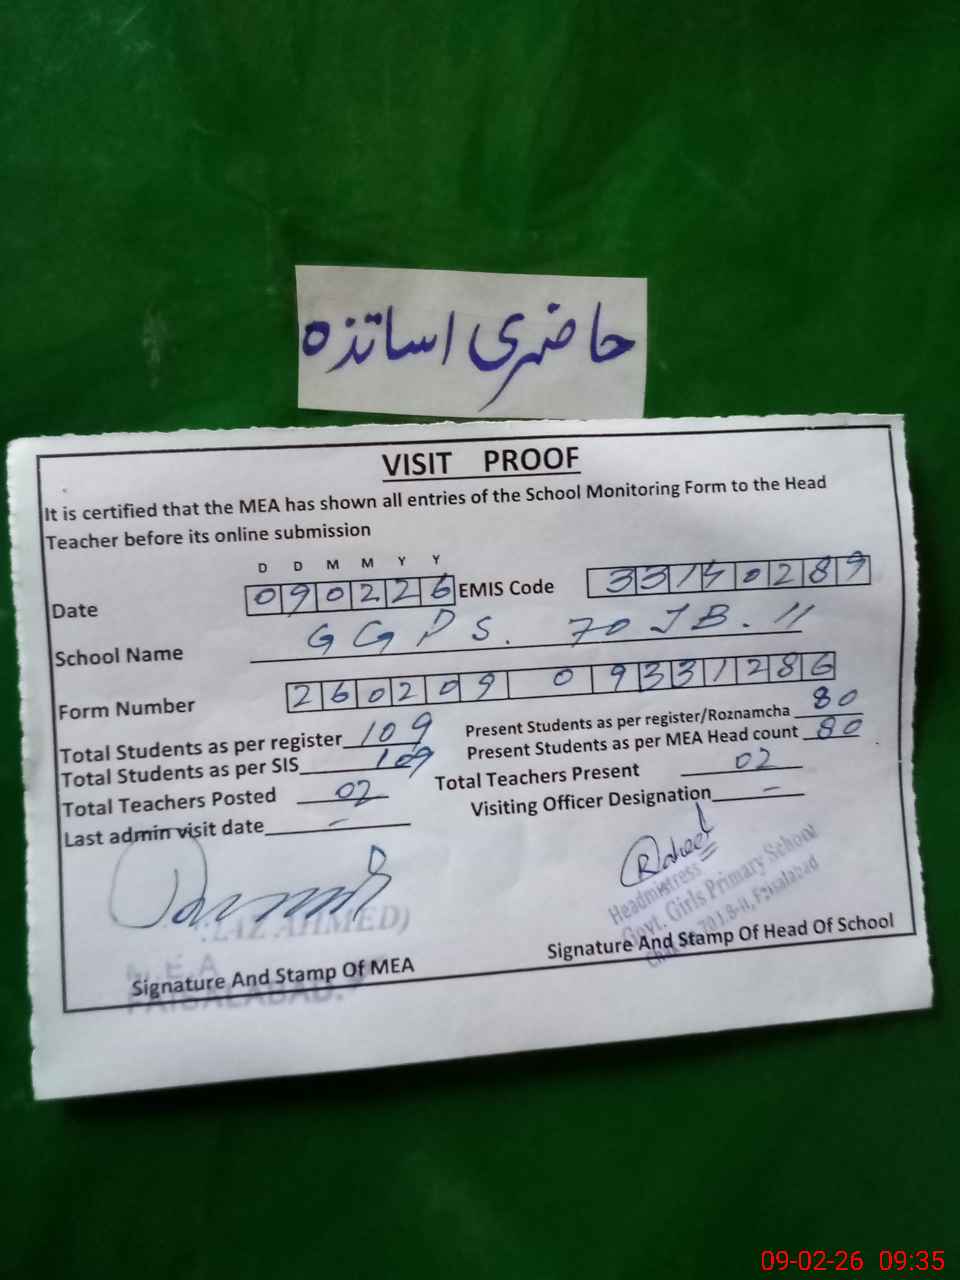 حاضری اساتذہ
VISIT PROOF
It is certified that the MEA has shown all entries of the School Monitoring Form to the Head
Teacher before its online submission
D D M M Y Y
Date 090226 EMIS Code 33140289
School Name GGPS. 70 JB. II
Form Number 260209 0 9331286
Total Students as per register 109 Present Students as per register/Roznamcha 80
Total Students as per SIS 109 Present Students as per MEA Head count 80
Total Teachers Posted 02 Total Teachers Present 02
Last admin visit date - Visiting Officer Designation -
AHMED)
Headmistress
Govt. Girls Primary School
Faisalabad
M.E.A
FAISALABAD.
Signature And Stamp Of MEA Signature And Stamp Of Head Of School
09-02-26 09:35